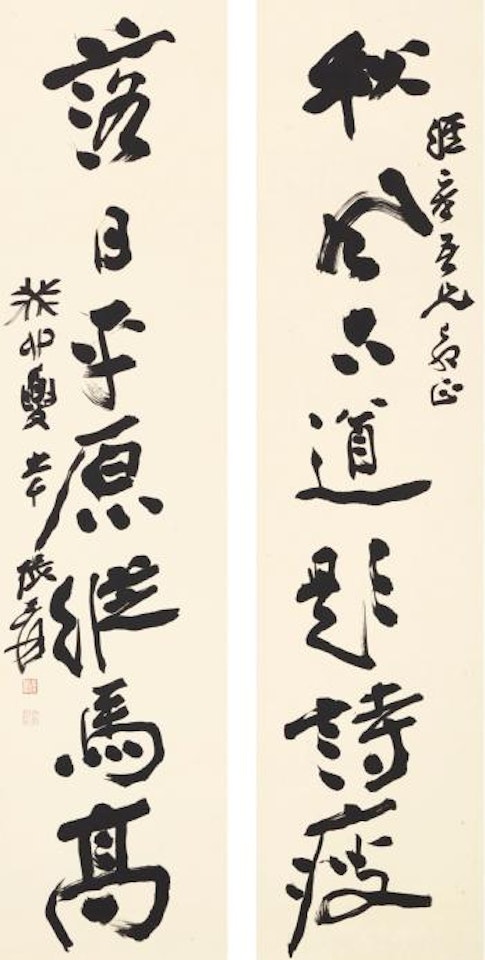 章吾兄正
秋風古道題詩瘦
落日平原縱馬高
癸卯夏大千張爰